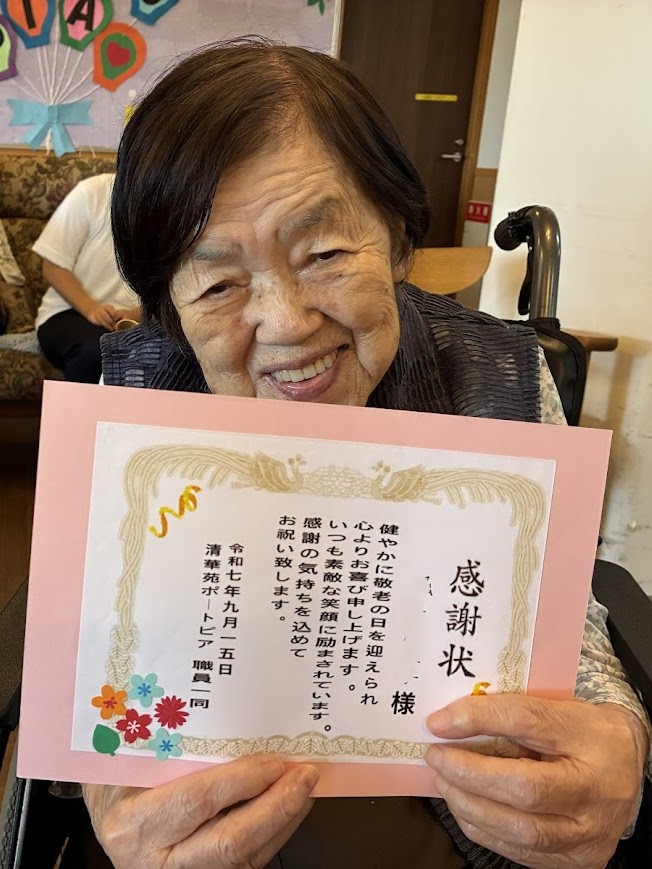 感謝状
様
健やかに敬老の日を迎えられ
心よりお喜び申し上げます。
いつも素敵な笑顔に励まされています。
感謝の気持ちを込めて
お祝い致します。
令和七年九月一五日
清華苑ポートピア 職員一同
A